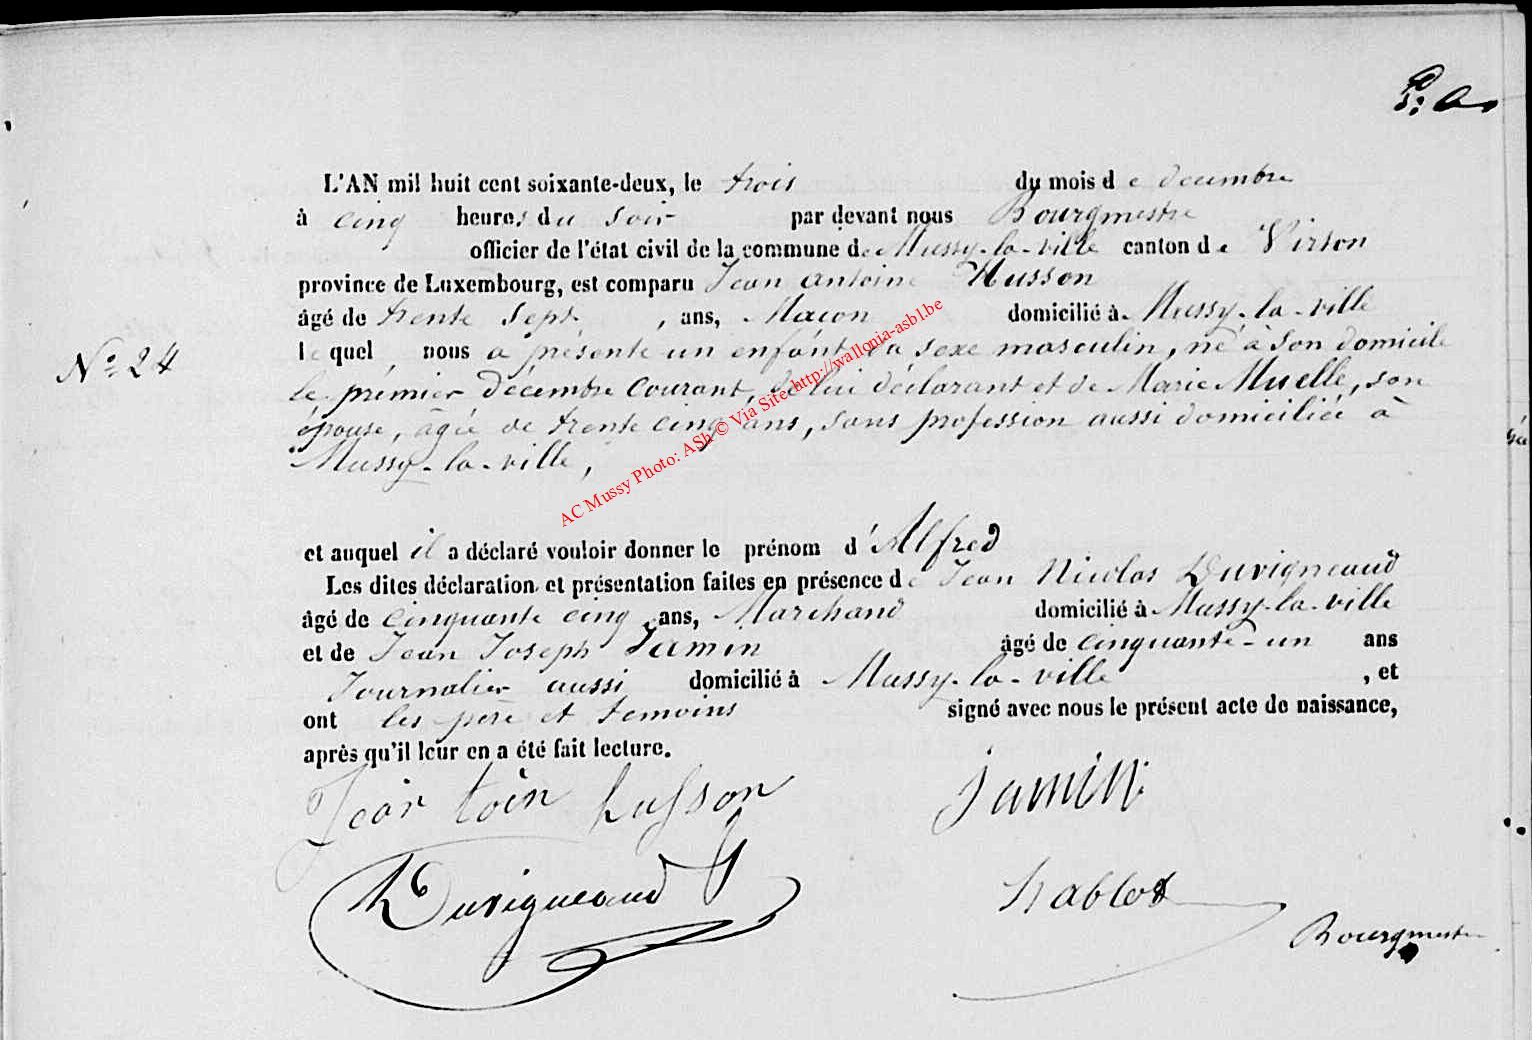 L'AN mil huit cent soixante-deux, le trois du mois de decembre
à cinq heures du soir par devant nous Bourgmestre
officier de l'état civil de la commune de Mussy-la-ville canton de Virton
province de Luxembourg, est comparu Jean Antoine Husson
âgé de trente sept, ans, Macon domicilié à Mussy-la-ville
lequel nous a présenté un enfant du sexe masculin, né à son domicile
N° 24
le premier décembre courant, de lui déclarant et de Marie Muelle, son
épouse, âgée de trente cinq ans, sans profession aussi domiciliée à
Mussy-la-ville,
AC Mussy Photo: ASb © Via Site http://wallonia-asbl.be
et auquel il a déclaré vouloir donner le prénom d'Alfred
Les dites déclaration et présentation faites en présence de Jean Nicolas Duvigneaud
âgé de cinquante cinq ans, Marchand domicilié à Mussy-la-ville
et de Jean Joseph Jamin âgé de cinquante-un ans
Journalier aussi domicilié à Mussy-la-ville, et
ont les père et temoins signé avec nous le présent acte de naissance,
après qu'il leur en a été fait lecture.
Jean toin husson Jamin
Duvigneaud hablot
Bourgmestre